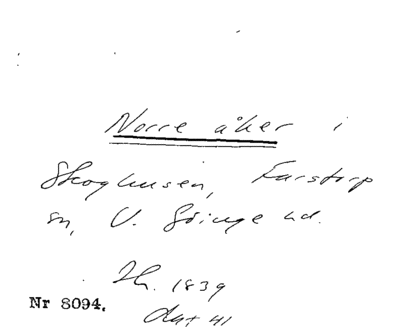 Norre åker i
Skoghusen, Farstorp
sn, V. Göinge hd.
Lh. 1839
Nr 8094.
dat 41